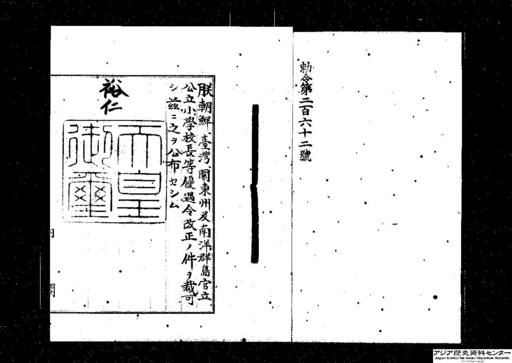 勅令第二百六十二號
朕朝鮮、臺灣、關東州及南洋群島官立
公立小學校長等優遇令改正ノ件ヲ裁可
シ茲ニ之ヲ公布セシム
裕仁
天皇
御璽
アジア歴史資料センター
Japan Center for Asian Historical Records